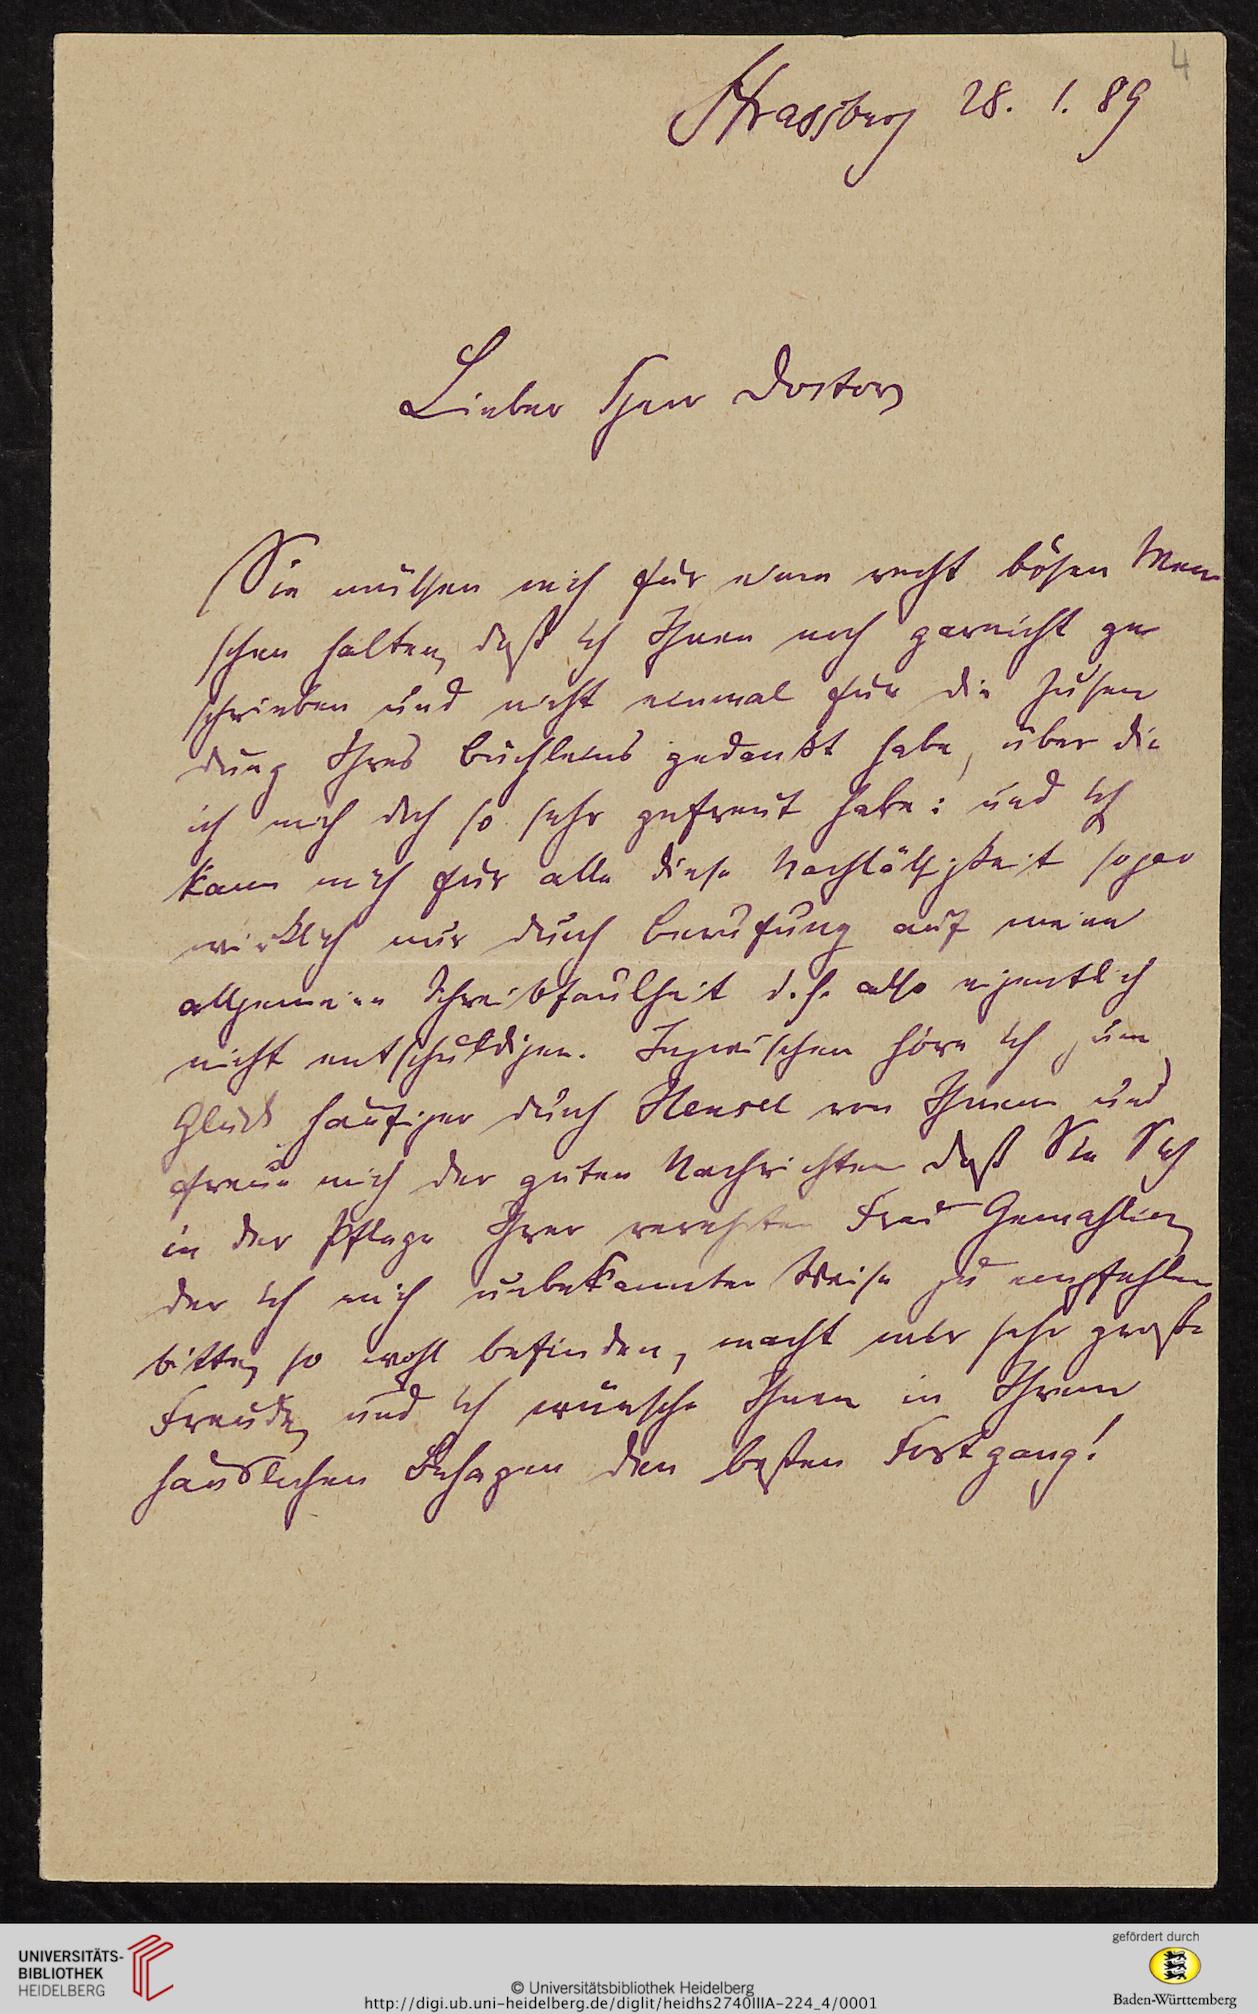 4
Strassburg 28. 1. 89
Lieber Herr Doctor,
Sie müssen mich für einen recht bösen Men-
schen halten, daß ich Ihnen noch garnicht ge
schrieben und nicht einmal für die Zusen
dung Ihres Büchleins gedankt habe, über die
ich mich doch so sehr gefreut habe: und ich
kann mich für alle diese Nachlässigkeit sogar
wirklich nur durch Berufung auf meine
allgemeine Schreibfaulheit d. h. also eigentlich
nicht entschuldigen. Inzwischen höre ich zum
Glück häufiger durch Hensel von Ihnen und
freue mich der guten Nachrichten. Daß Sie Sich
in der Pflege Ihrer verehrten Frau Gemahlin,
der ich mich unbekannter Weise zu empfehlen
bitte, so wohl befinden, macht mir sehr große
Freude, und ich wünsche Ihnen in Ihrem
häuslichen Behagen den besten Fortgang!
UNIVERSITÄTS-
BIBLIOTHEK
HEIDELBERG
© Universitätsbibliothek Heidelberg
http://digi.ub.uni-heidelberg.de/diglit/heidhs2740IIIA-224_4/0001
gefördert durch
Baden-Württemberg